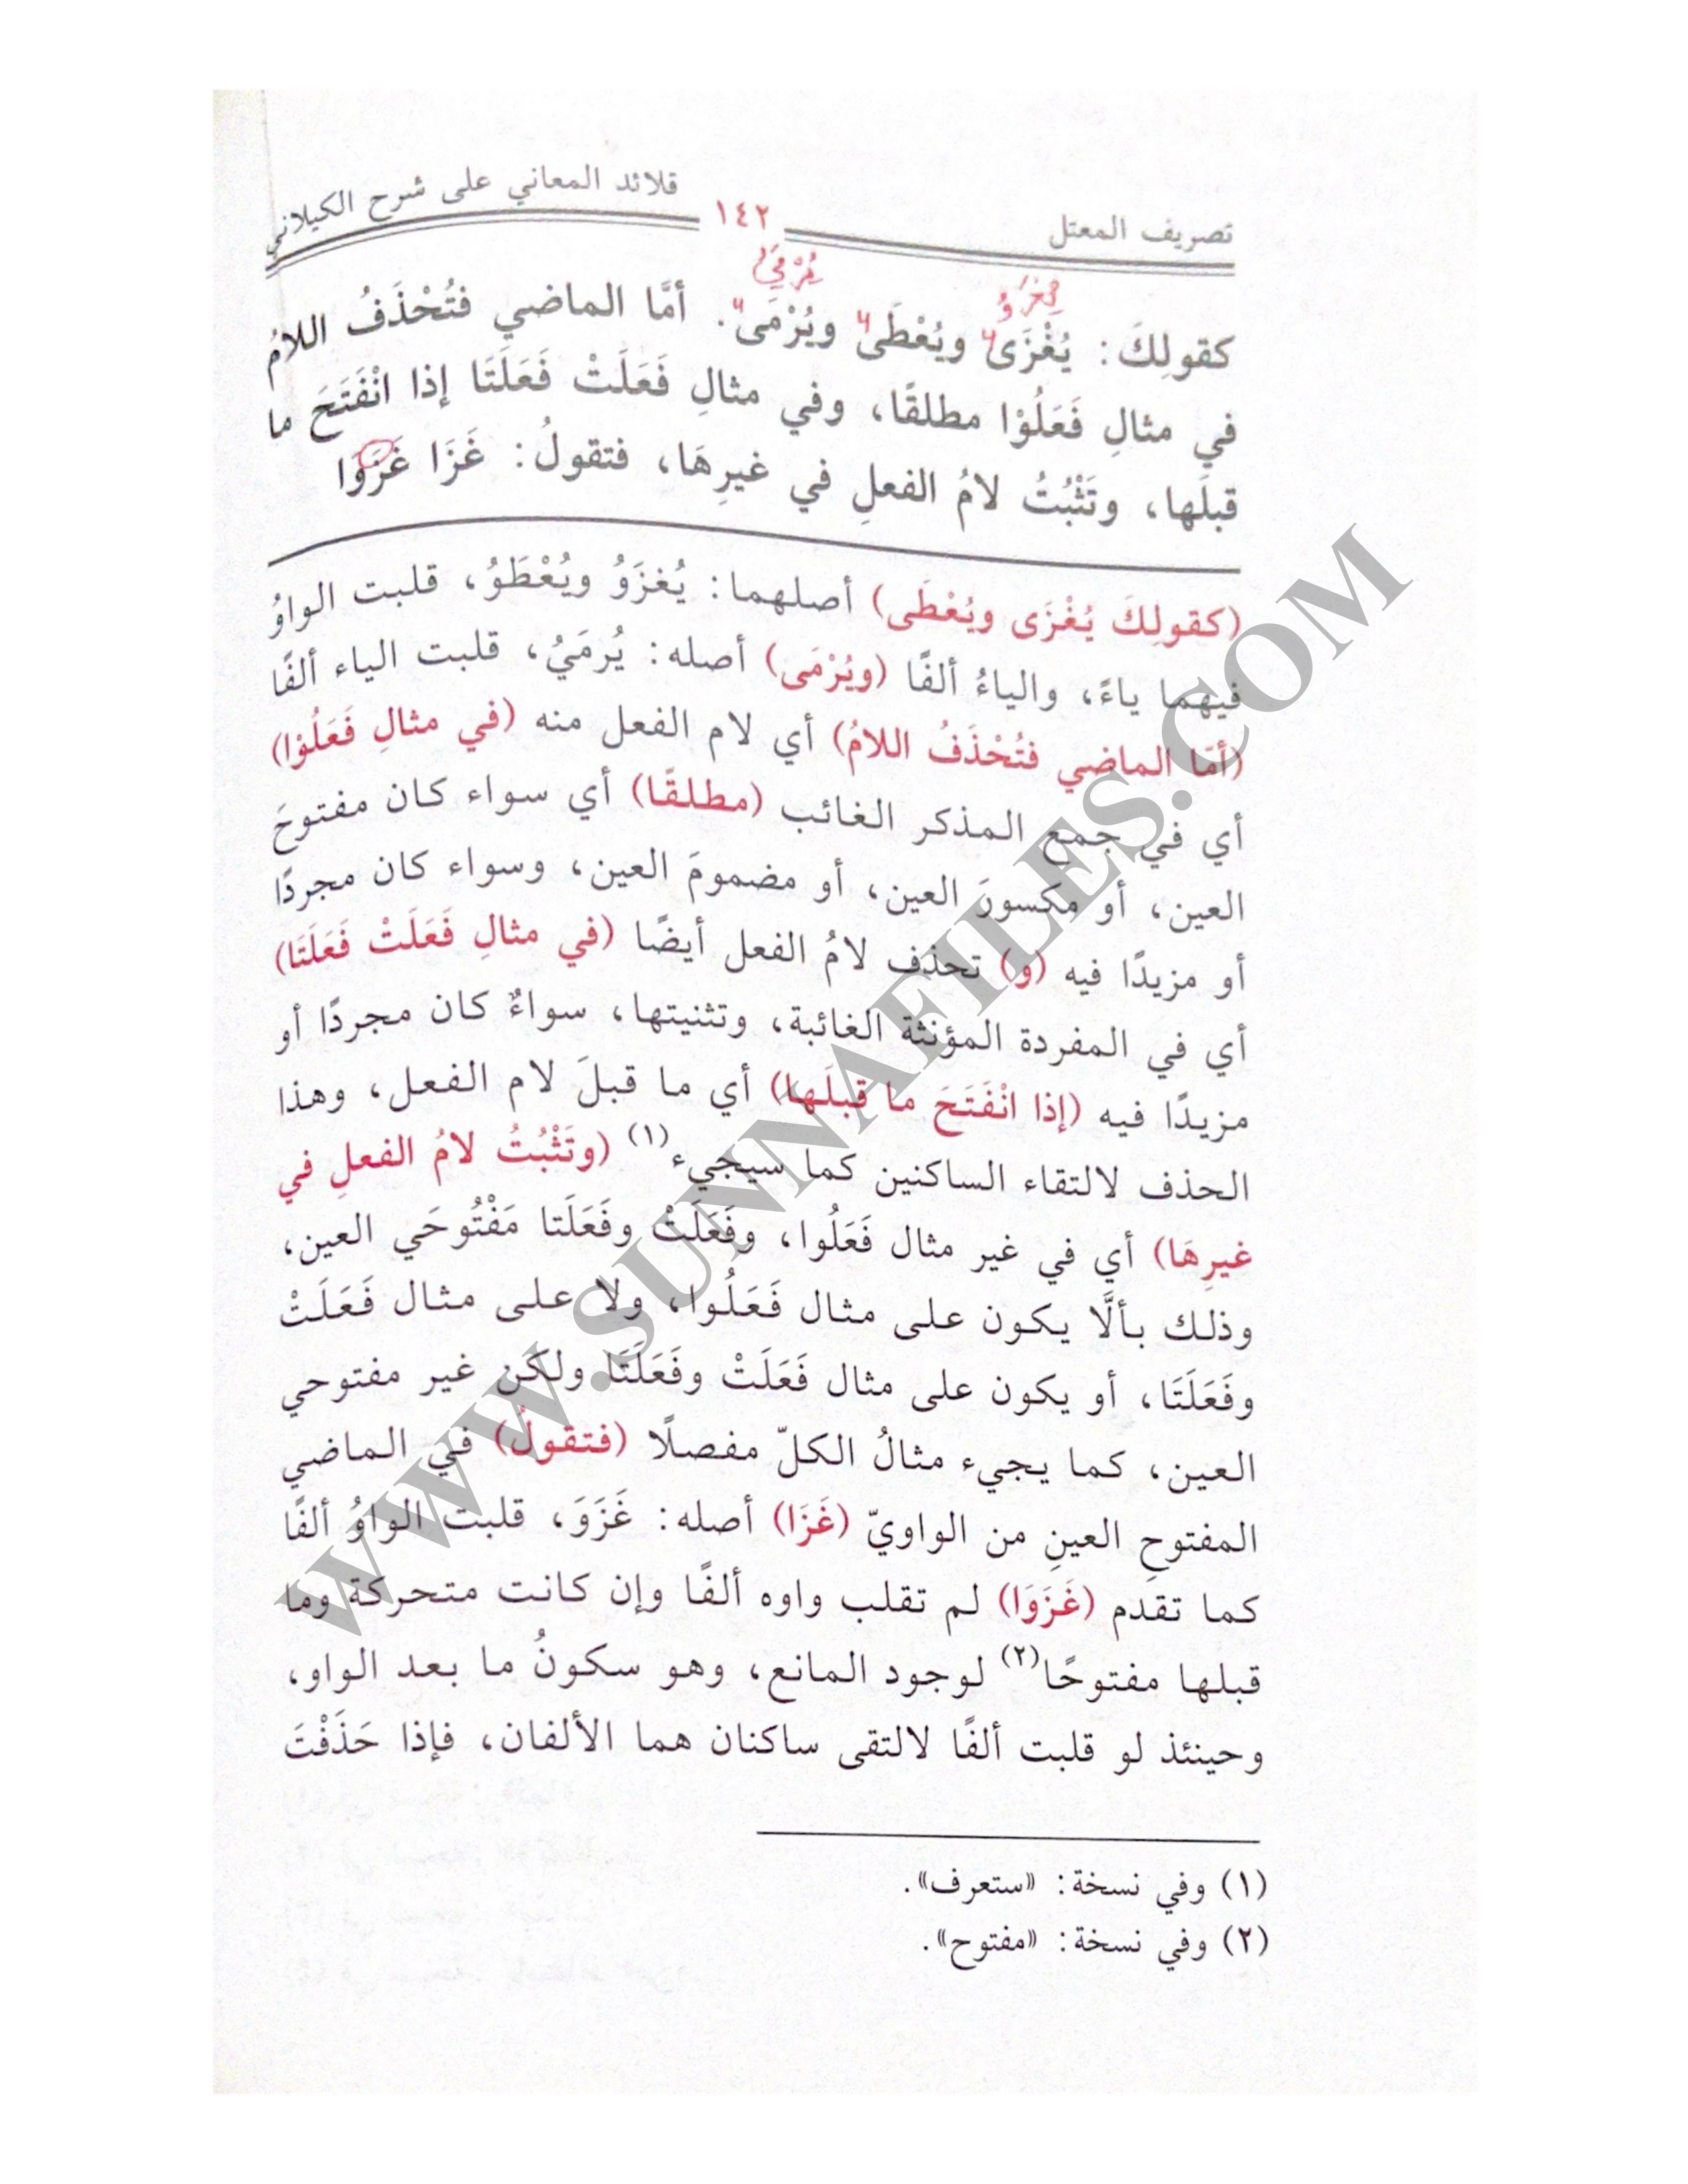 تصريف المعتل ١٤٢ قلائد المعاني على شرح الكيلاني
يُرْمَيُ
يُغْزَوُ
كقولِكَ: يُغْزَى ويُعْطَى ويُرْمَى. أمَّا الماضي فتُحْذَفُ اللامُ
في مثالِ فَعَلُوْا مطلقًا، وفي مثالِ فَعَلَتْ فَعَلَتَا إذا انْفَتَحَ ما
قبلَها، وتَثْبُتُ لامُ الفعلِ في غيرِهَا، فتقولُ: غَزَا غَزَوَا
(كقولِكَ يُغْزَى ويُعْطَى) أصلهما: يُغزَوُ ويُعْطَوُ، قلبت الواوُ
فيهما ياءً، والياءُ ألفًا (ويُرْمَى) أصله: يُرمَيُ، قلبت الياء ألفًا
(أمَّا الماضي فتُحْذَفُ اللامُ) أي لام الفعل منه (في مثالِ فَعَلُوْا)
أي في جمع المذكر الغائب (مطلقًا) أي سواء كان مفتوحَ
العين، أو مكسورَ العين، أو مضمومَ العين، وسواء كان مجردًا
أو مزيدًا فيه (و) تحذف لامُ الفعل أيضًا (في مثالِ فَعَلَتْ فَعَلَتَا)
أي في المفردة المؤنثة الغائبة، وتثنيتها، سواءٌ كان مجردًا أو
مزيدًا فيه (إذا انْفَتَحَ ما قبلَها) أي ما قبلَ لام الفعل، وهذا
الحذف لالتقاء الساكنين كما سيجيء(١) (وتَثْبُتُ لامُ الفعلِ في
غيرِهَا) أي في غير مثال فَعَلُوا، وفَعَلَتْ وفَعَلَتا مَفْتُوحَي العين،
وذلك بألَّا يكون على مثال فَعَلُوا، ولا على مثال فَعَلَتْ
وفَعَلَتَا، أو يكون على مثال فَعَلَتْ وفَعَلَتَا ولكن غير مفتوحي
العين، كما يجيء مثالُ الكلّ مفصلًا (فتقولُ) في الماضي
المفتوحِ العينِ من الواويّ (غَزَا) أصله: غَزَوَ، قلبت الواوُ ألفًا
كما تقدم (غَزَوَا) لم تقلب واوه ألفًا وإن كانت متحركة وما
قبلها مفتوحًا(٢) لوجود المانع، وهو سكونُ ما بعد الواو،
وحينئذ لو قلبت ألفًا لالتقى ساكنان هما الألفان، فإذا حَذَفْتَ
(١) وفي نسخة: «ستعرف».
(٢) وفي نسخة: «مفتوح».
WWW.SUNNAFILES.COM